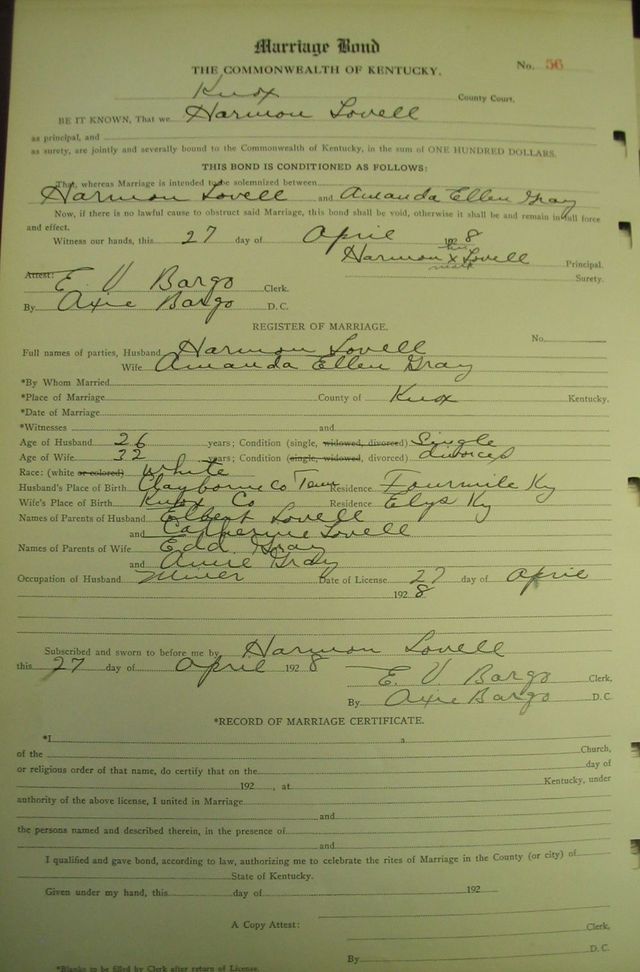 Marriage Bond
No. 56
THE COMMONWEALTH OF KENTUCKY,
Knox County Court.
BE IT KNOWN, That we Harmon Lovell
as principal, and
as surety, are jointly and severally bound to the Commonwealth of Kentucky, in the sum of ONE HUNDRED DOLLARS.
THIS BOND IS CONDITIONED AS FOLLOWS:
That, whereas Marriage is intended to be solemnized between
Harmon Lovell and Amanda Ellen Gray
Now, if there is no lawful cause to obstruct said Marriage, this bond shall be void, otherwise it shall be and remain in full force
and effect.
Witness our hands, this 27 day of April 1928
his
Harmon x Lovell Principal.
mark
Surety.
Attest: E. V Bargo Clerk.
By Axie Bargo D. C.
REGISTER OF MARRIAGE.
No.
Full names of parties, Husband Harmon Lovell
Wife Amanda Ellen Gray
*By Whom Married
*Place of Marriage County of Knox Kentucky.
*Date of Marriage
*Witnesses and
Age of Husband 26 years; Condition (single, widowed, divorced) Single
Age of Wife 32 years; Condition (single, widowed, divorced) divorced
Race: (white or colored) White
Husband's Place of Birth Clayborne Co Tenn Residence Fourmile Ky
Wife's Place of Birth Knox Co Residence Elys Ky
Names of Parents of Husband Elbert Lovell
and Catherine Lovell
Names of Parents of Wife Edd Gray
and Gray
Occupation of Husband Miner Date of License 27 day of April
1928
Subscribed and sworn to before me by Harmon Lovell
this 27 day of April 1928
E. V. Bargo Clerk,
By Axie Bargo D. C.
*RECORD OF MARRIAGE CERTIFICATE.
*I a
of the Church,
or religious order of that name, do certify that on the day of
192 , at Kentucky, under
authority of the above license, I united in Marriage
and
the persons named and described therein, in the presence of
and
I qualified and gave bond, according to law, authorizing me to celebrate the rites of Marriage in the County (or city) of
State of Kentucky.
Given under my hand, this day of 192
A Copy Attest:
Clerk,
By D. C.
*Blanks to be filled by Clerk after return of License.